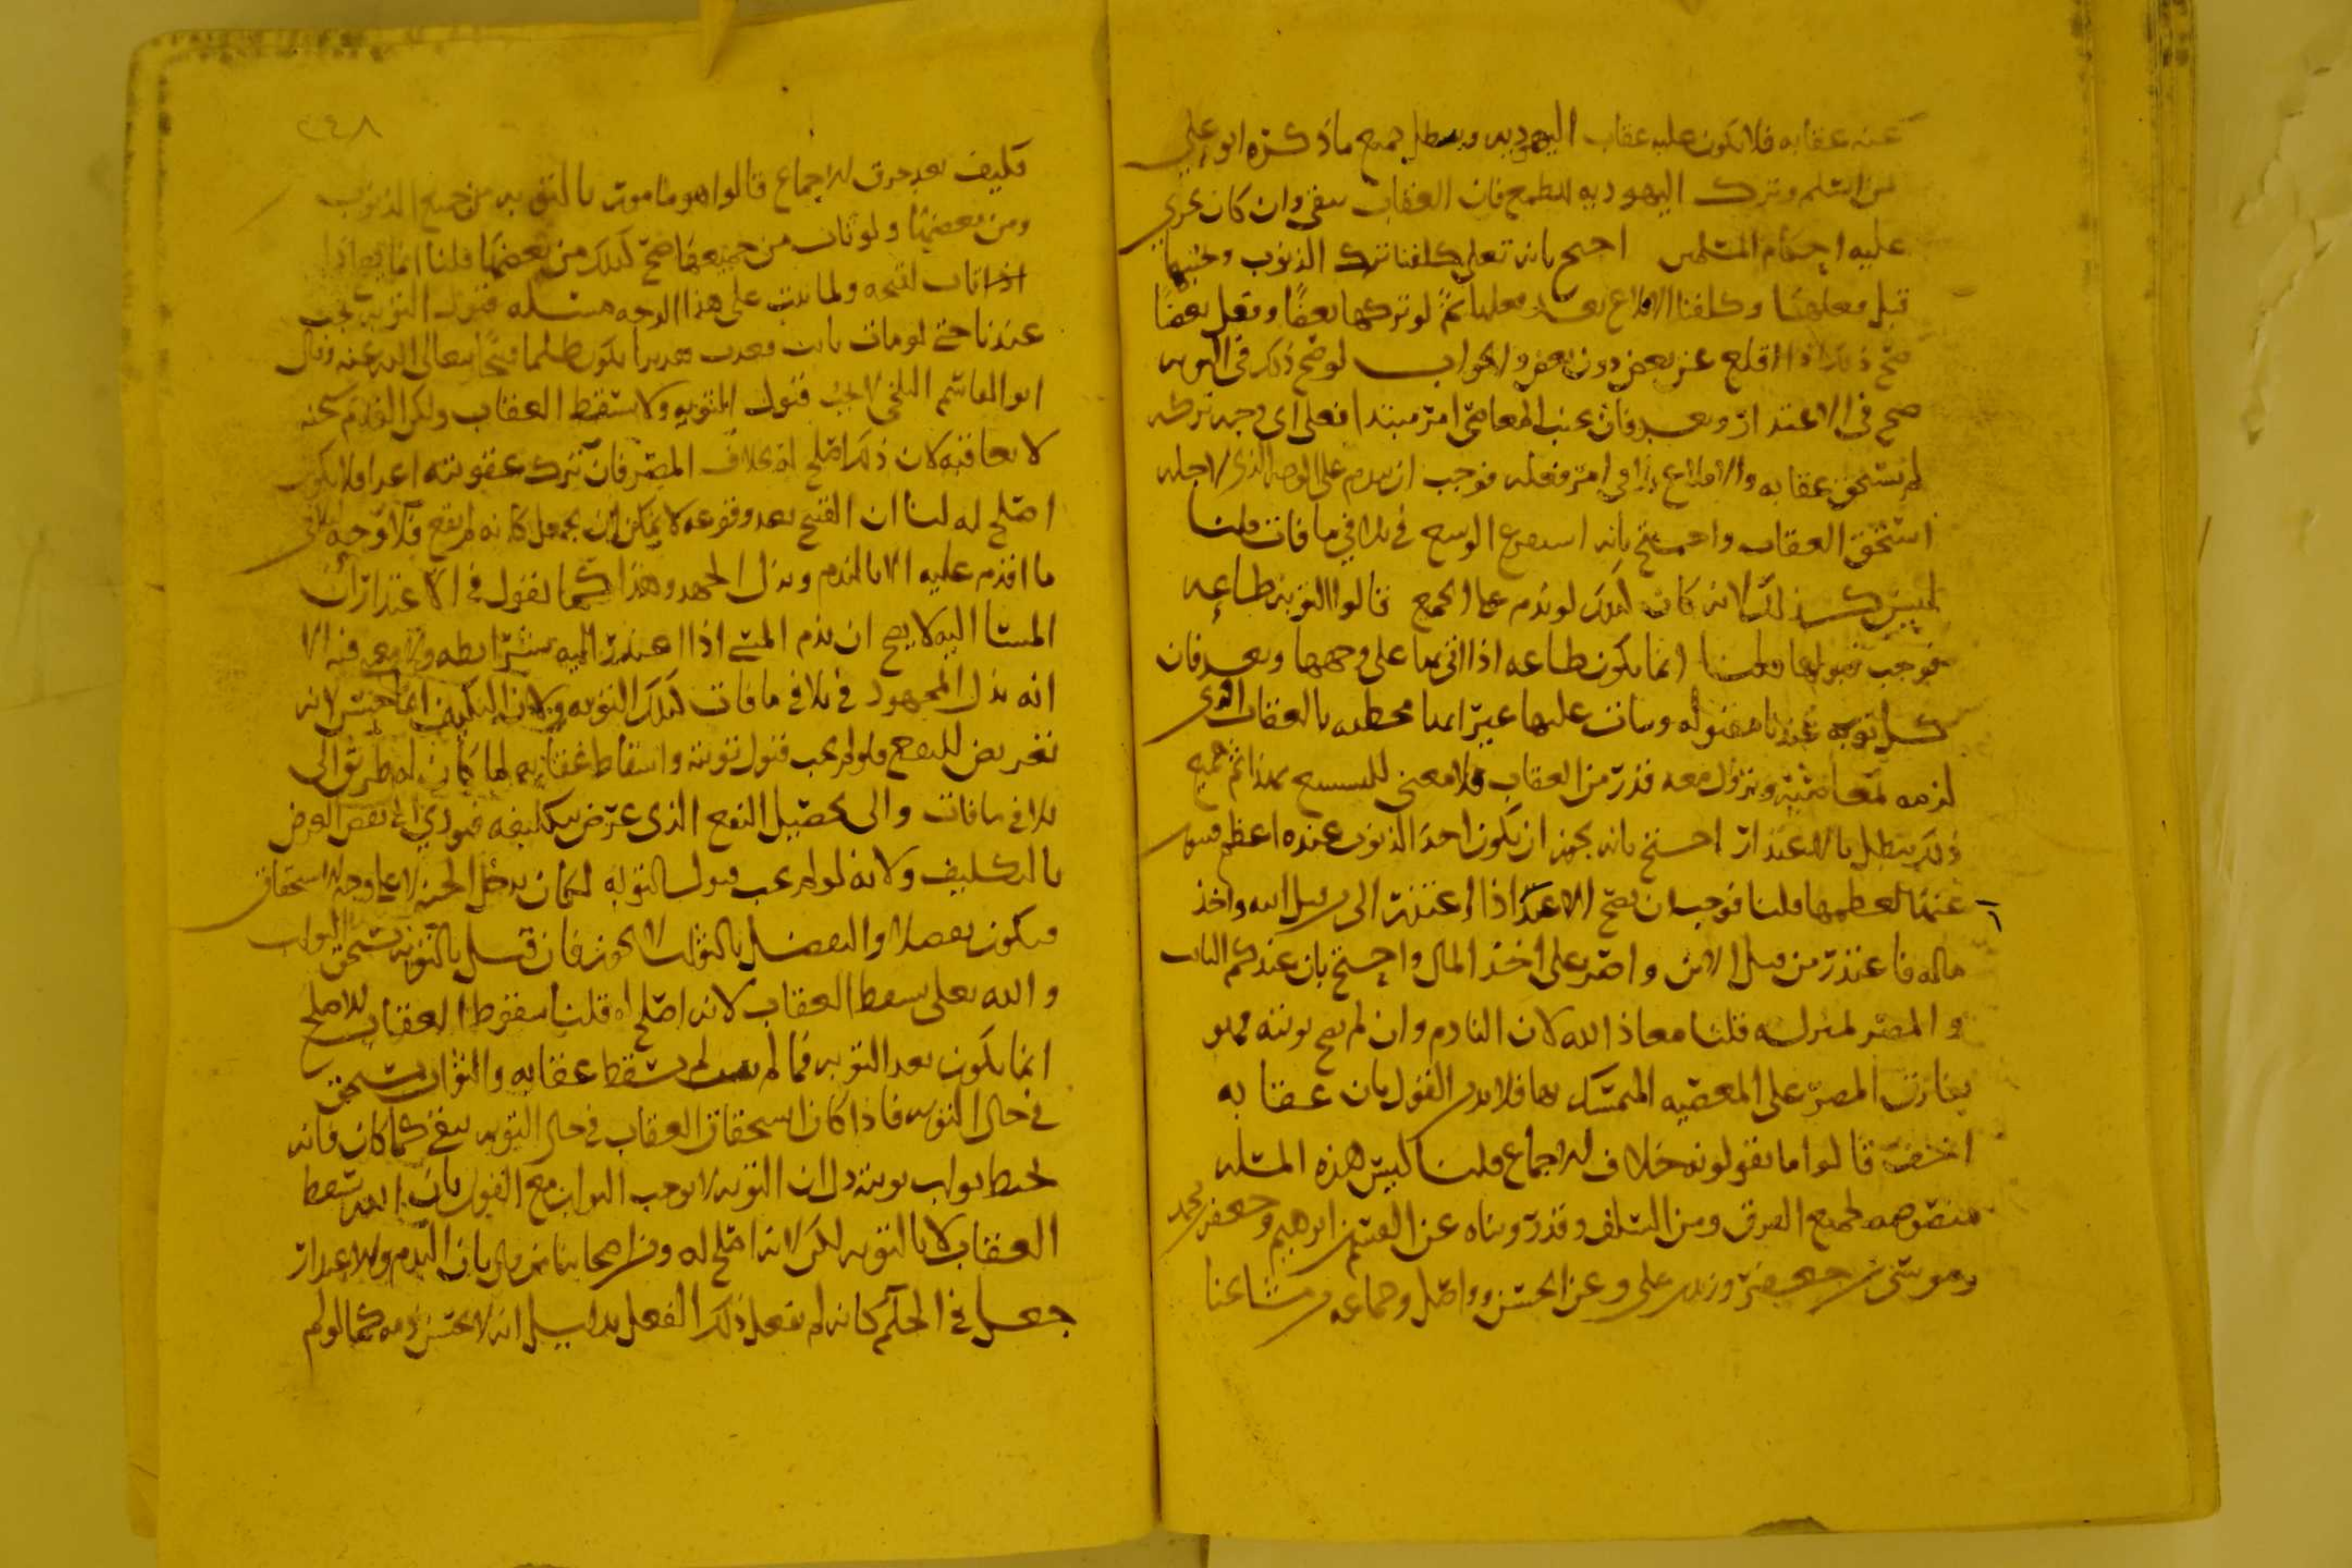 عنه عقابه فلا يكون عليه عقاب اليهوديه ويبطل جميع ما ذكره ابو علي
من اسلم وترك اليهوديه للطمع فان العقاب يبقى وان كان يجري
عليه احكام المسلمين احتج بانه تعلى كلفنا ترك الذنوب وتجنبها
قبل فعلها وكلفنا الاقلاع بعد فعلها ثم لو تركها بعضًا وفعل بعضًا
صح ذلك اذا اقلع عن بعض دون بعض والجواب لو صح ذلك في التوبه
صح في الاعتذار وبعد فان تجنب المعاصي امر مبتدا فعلى اي وجه تركه
لم يستحق عقابه والاقلاع تلافي امر فعله فوجب ان يندم على الوجه الذي لاجله
استحق العقاب واحتج بانه استفرغ الوسع في تلافي ما فات قلنا
ليس كذلك لانه كان كذلك لو ندم على الجميع قالوا التوبه طاعه
فوجب قبولها قلنا انما يكون طاعه اذا اتى بها على وجهها وبعد فان
كل توبه عندنا مقبوله ويثاب عليها غير انها محبطه بالعقاب الذي
لزمه لمعاصيه ويزول معه قدر من العقاب فلا معنى للتشنيع بهذا ثم جميع
ذلك يبطل بالاعتذار احتج بانه يجوز ان يكون احد الذنوب عنده اعظم فيتوب
عنها لعظمها قلنا فوجب ان يصح الاعتذار اذا اعتذر الى من قتل ابنه واخذ
ماله فاعتذر من قتل الابن واصر على اخذ المال واحتج بان عندكم التائب
والمصر بمنزله قلنا معاذ الله لان النادم وان لم يصح توبته فهو
يفارق المصر على المعصيه المتمسك بها فلا بد من القول بان عقابه
اخف قالوا ما تقولونه خلاف الاجماع قلنا ليس هذه المسله
منصوصه لجميع الفرق ومن السلف وقد روينا عن القسم بن ابرهيم وجعفر بن محمد
وموسى بن جعفر وزيد بن علي وعن الحسن وواصل وجماعه من مشائخنا
٢٤٨
فكيف يعد خرق الاجماع قالوا هو مامور بالتوبه من جميع الذنوب
ومن بعضها ولو تاب من جميعها صح كذلك من بعضها قلنا انما يصح اذا
اذا تاب لقبحه ولما يتب على هذا الوجه مسله قبول التوبه يجب
عندنا حتى لو مات تائب فعذب بعدها يكون ظلما قبيحًا تعالى الله عنه وقال
ابو القاسم البلخي لا يجب قبول التوبه ولا يسقط العقاب ولكن القديم سبحنه
لا يعاقبه لان ذلك اصلح له بخلاف المصر فان ترك عقوبته اغرا فلا يكون
اصلح له لنا ان القبيح بعد وقوعه لا يمكن ان يجعل كانه لم يقع فلا وجه لتلافي
ما اقدم عليه الا بالندم وبذل الجهد وهذا كما نقول في الاعتذار ان
المسا اليه لا يصح ان يذم المسي اذا اعتذر اليه بشرايطه ولا معنى فيه الا
انه بذل المجهود في تلافي ما فات كذلك التوبه ولان التكليف انما حسن لانه
تعريض للنفع فلو لم يجب قبول توبته واسقاط عقابه لما كان له طريق الى
تلافي ما فات والى تحصيل النفع الذي عرض بتكليفه فيودي الى نقض الغرض
بالتكليف ولانه لو لم يجب قبول التوبه لكان يدخل الجنه لا على وجه الاستحقاق
فيكون تفضلا والتفضل بالثواب لا يجوز فان قيل بالتوبه يستحق الثواب
والله تعلى يسقط العقاب لانه اصلح له قلنا سقوط العقاب للاصلح
انما يكون بعد التوبه فما لم يتب لم يسقط عقابه والثواب يستحق
في حال التوبه فاذا كان استحقاق العقاب في حال التوبه يبقى كما كان فانه
يحبط ثواب توبته دل ان التوبه لا توجب الثواب مع القول بان الله يسقط
العقاب لا بالتوبه لكن لانه اصلح له ومن اصحابنا من قال بان الندم والاعتذار
جعل في الحكم كانه لم يفعل ذلك الفعل بدليل انه لا يحسن ذمه كما لو لم